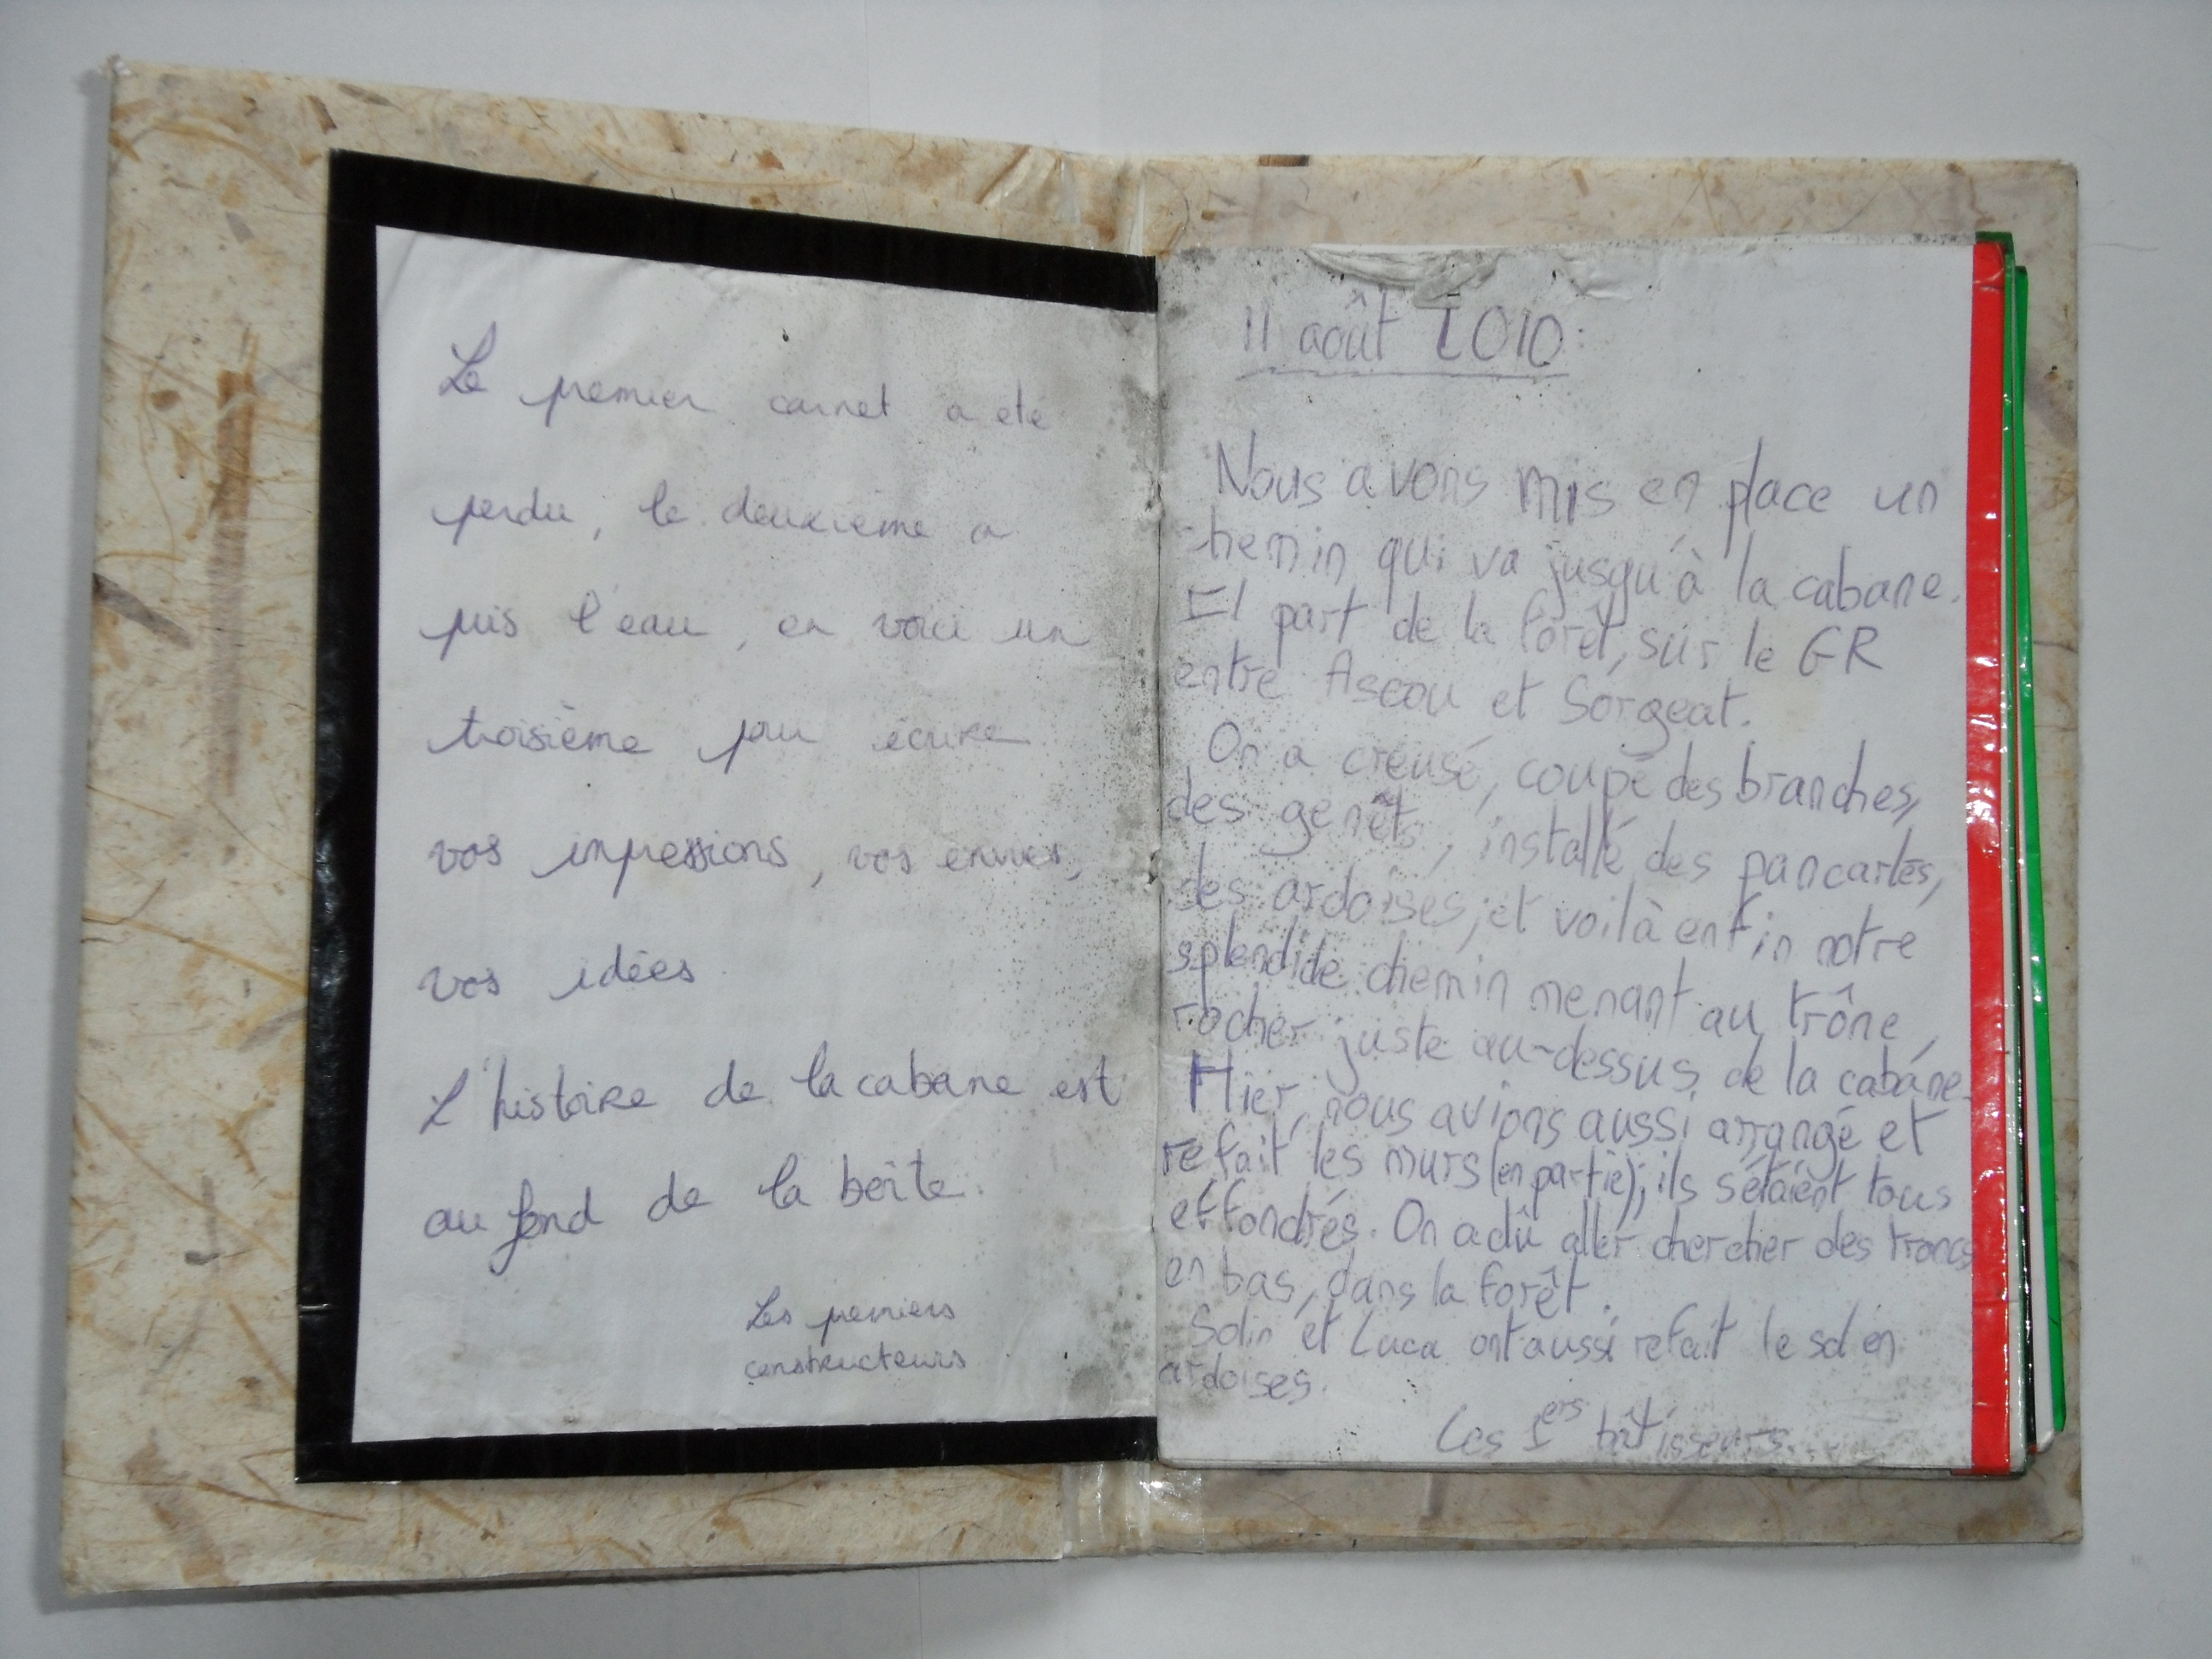 Le premier carnet a été
perdu, le deuxième a
pris l'eau, en voici un
troisième pour écrire
vos impressions, vos envies,
vos idées
L'histoire de la cabane est
au fond de la boîte.
Les premiers
constructeurs
11 août 2010:
Nous avons mis en place un
chemin qui va jusqu'à la cabane.
Il part de la forêt, sur le GR
entre Ascou et Sorgeat.
On a creusé, coupé des branches,
des genêts, installé des pancartes,
des ardoises, et voilà enfin notre
splendide chemin menant au trône,
rocher juste au-dessus de la cabane.
Hier, nous avions aussi arrangé et
refait les murs (en partie); ils s'étaient tous
effondrés. On a dû aller chercher des troncs
en bas, dans la forêt.
Solin et Luca ont aussi refait le sol en
ardoises.
Les 1ers bâtisseurs...